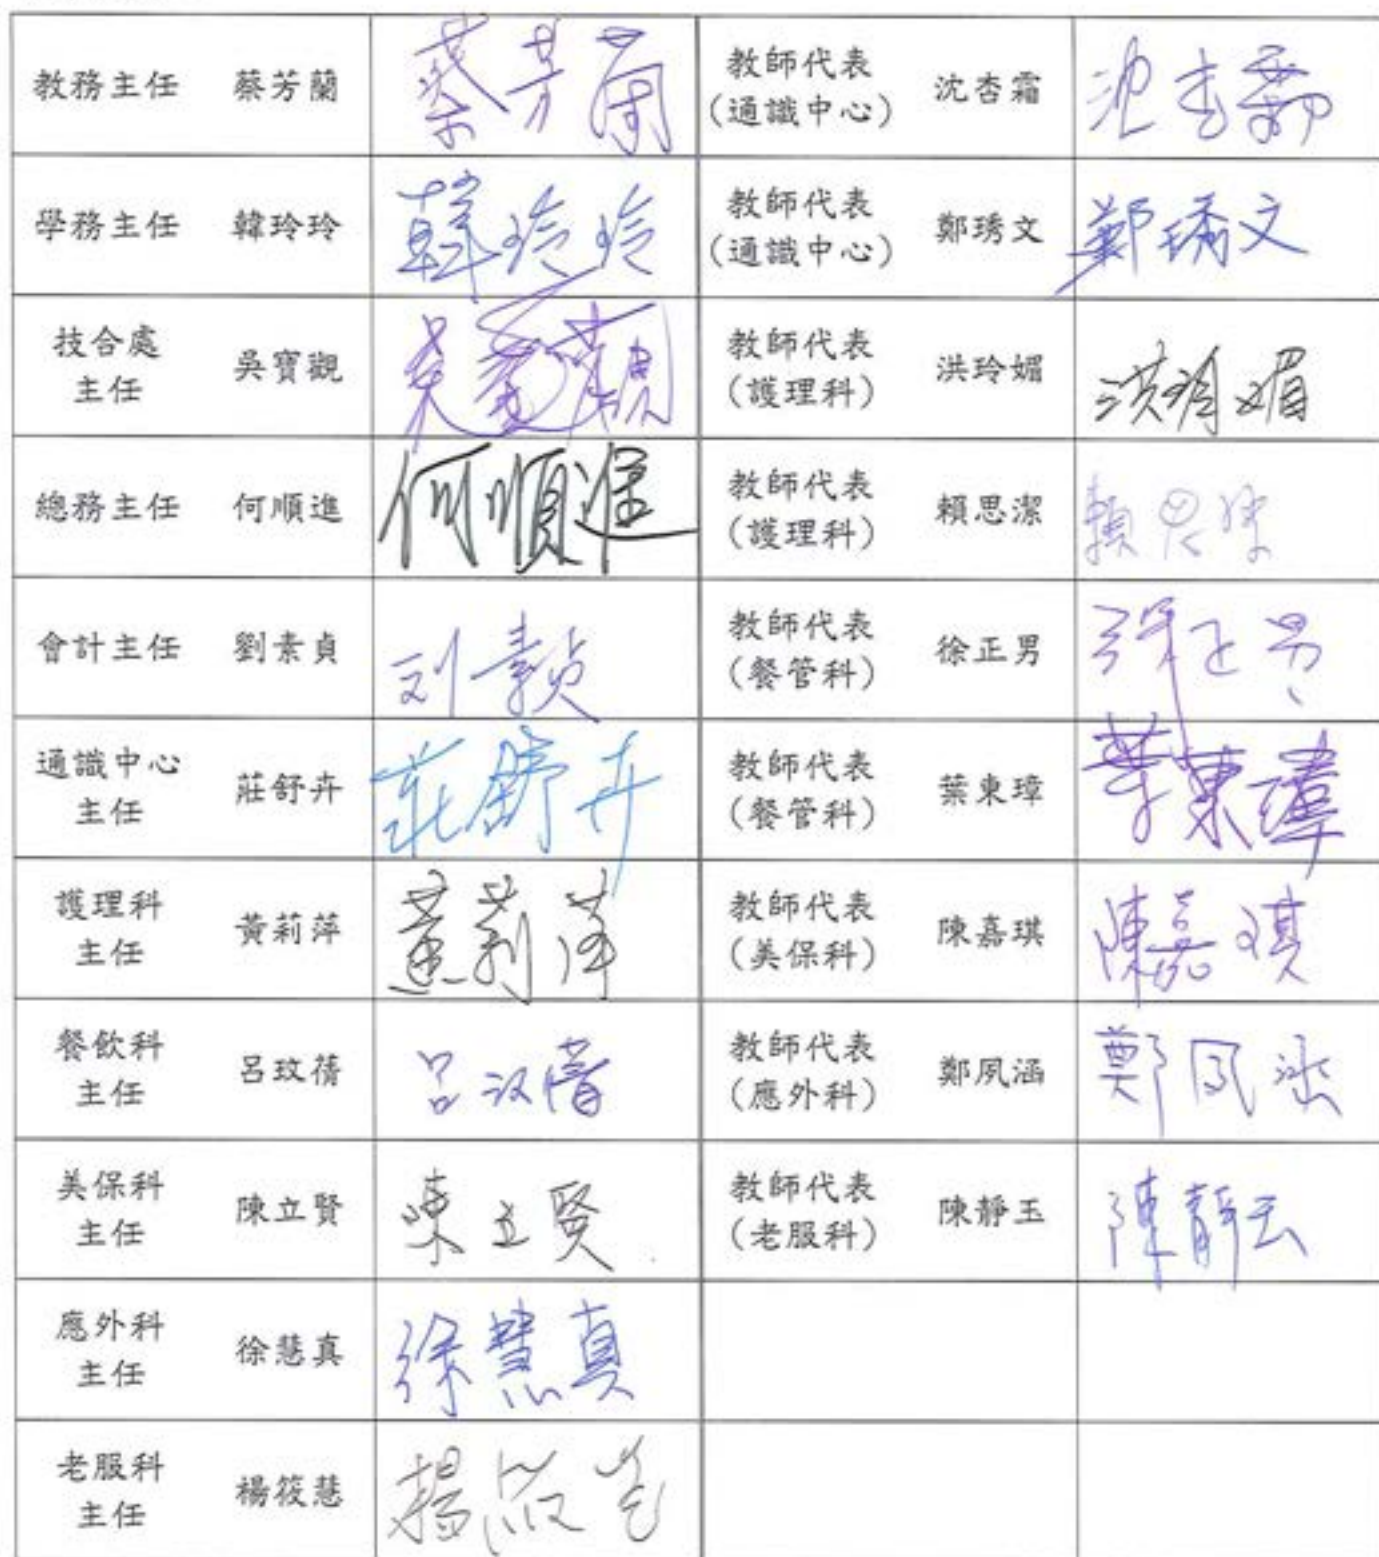 教務主任 蔡芳蘭 蔡芳蘭 教師代表
(通識中心) 沈杏霜 沈杏霜
學務主任 韓玲玲 韓玲玲 教師代表
(通識中心) 鄭琇文 鄭琇文
技合處
主任 吳寶觀 吳寶觀 教師代表
(護理科) 洪玲媚 洪玲媚
總務主任 何順進 何順進 教師代表
(護理科) 賴思潔 賴思潔
會計主任 劉素貞 刘素貞 教師代表
(餐管科) 徐正男 徐正男
通識中心
主任 莊舒卉 莊舒卉 教師代表
(餐管科) 葉東璋 葉東璋
護理科
主任 黃莉萍 黃莉萍 教師代表
(美保科) 陳嘉琪 陳嘉琪
餐飲科
主任 呂玟蒨 呂玟蒨 教師代表
(應外科) 鄭夙涵 鄭夙涵
美保科
主任 陳立賢 陳立賢 教師代表
(老服科) 陳靜玉 陳靜玉
應外科
主任 徐慧真 徐慧真
老服科
主任 楊筱慧 楊筱慧